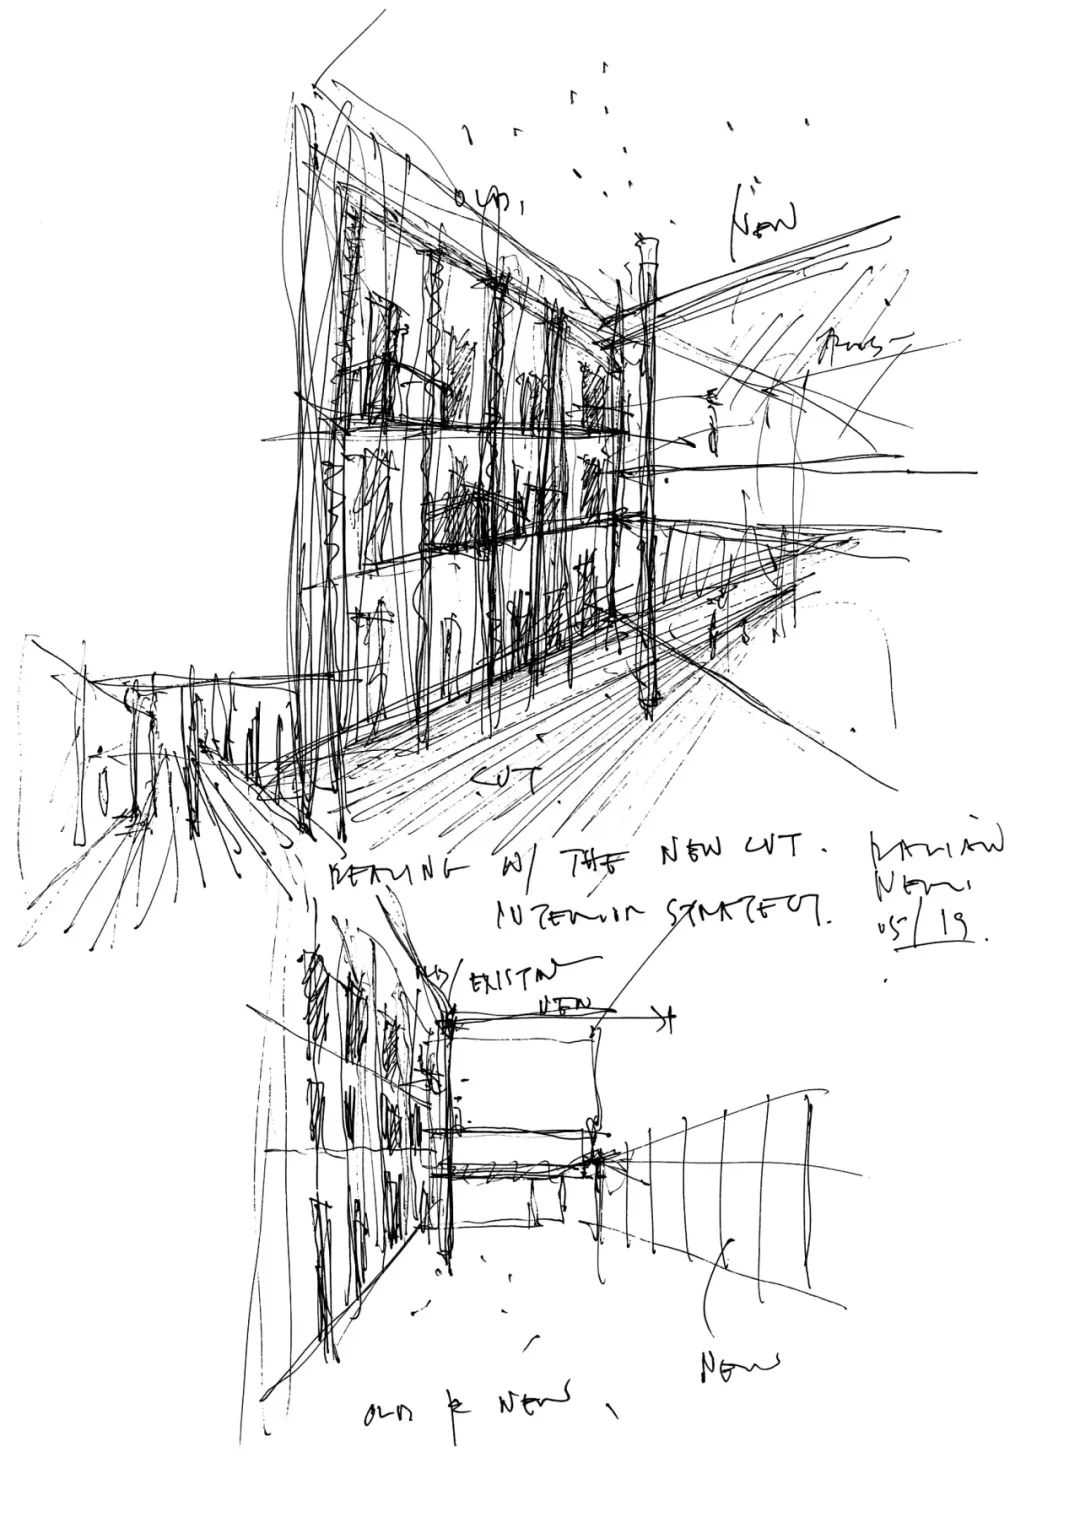 OLD,
NEW
CUT
DEALING W/ THE NEW CUT.
INTERIOR STRATEGY.
DALIAN
NEW.
05/19.
OLD/EXISTING
NEW
NEW
OLD & NEW,